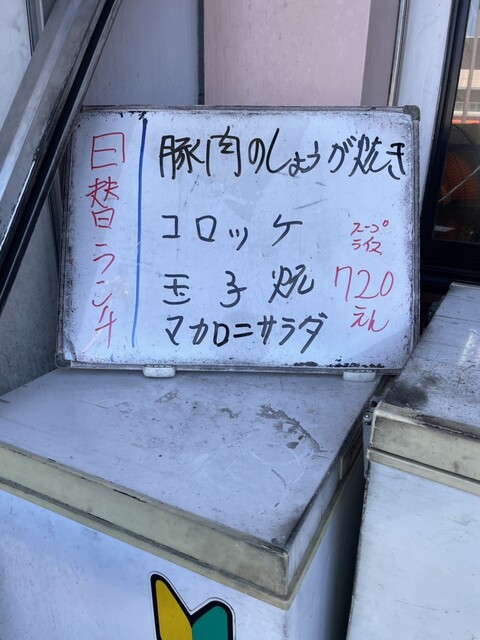 日替ランチ
豚肉のしょうが焼き
コロッケ
玉子焼
マカロニサラダ
スープ
ライス
720
えん